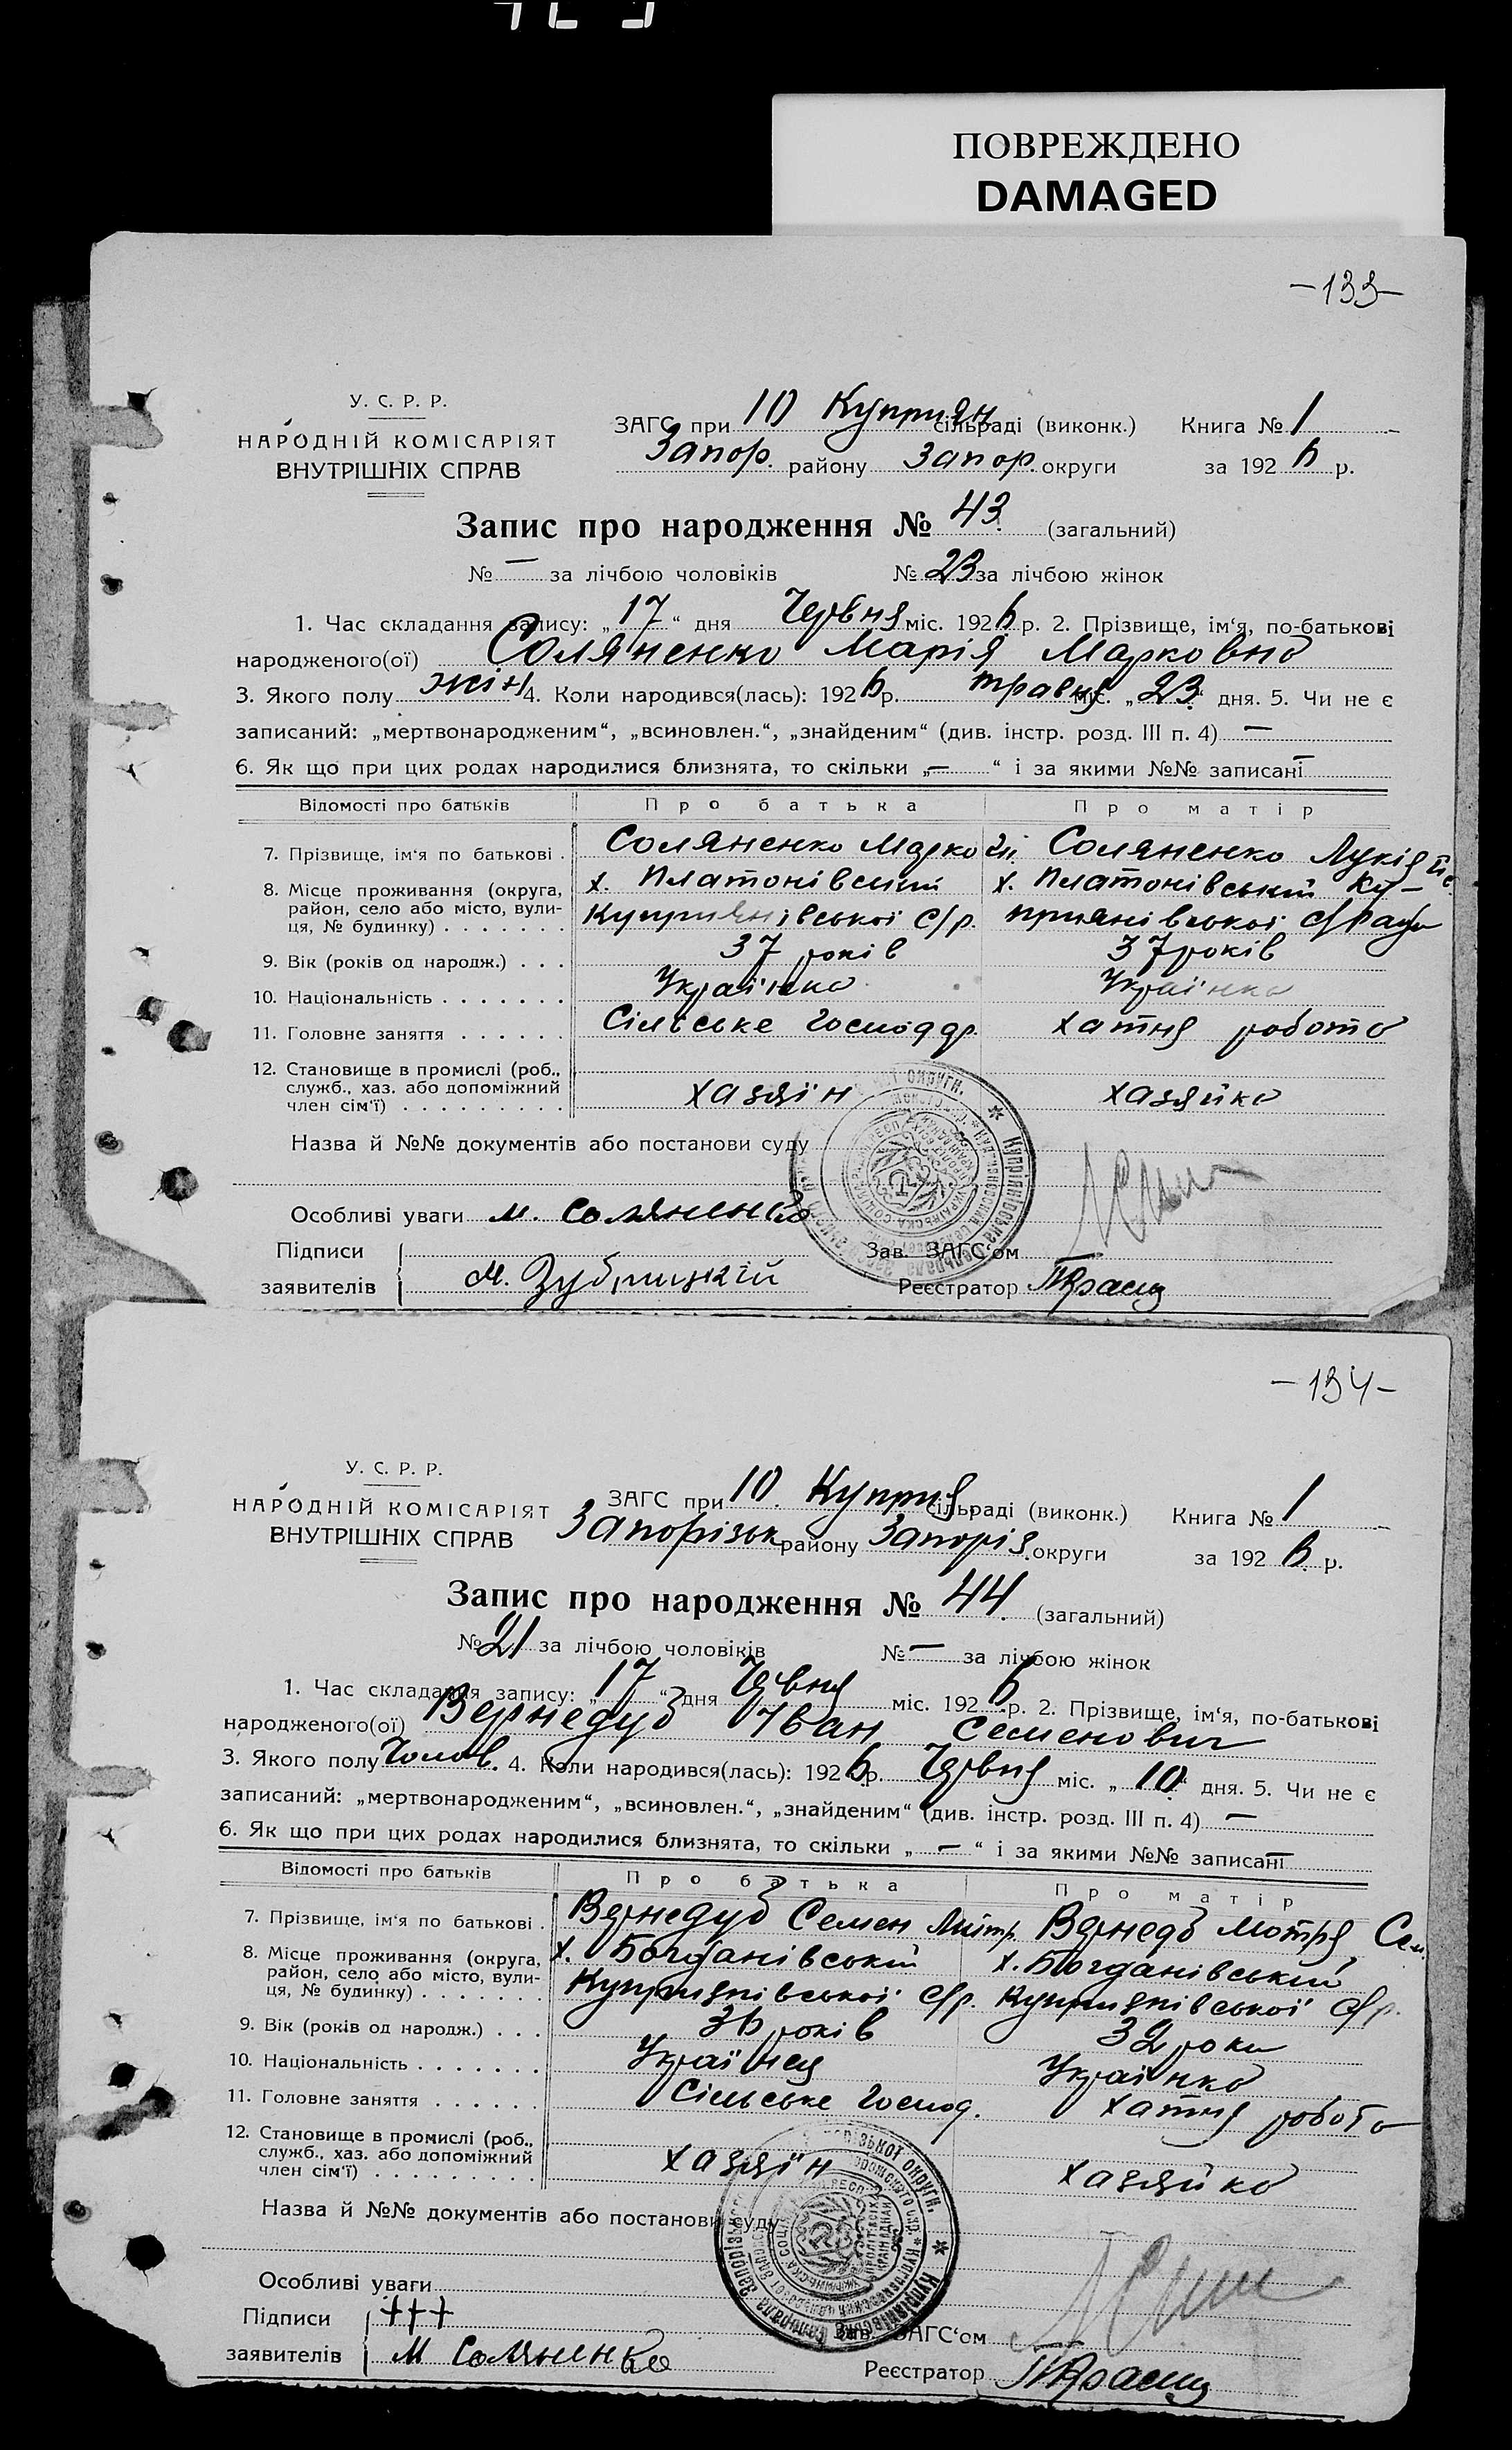 ПОВРЕЖДЕНО
DAMAGED
—133—
У. С. Р. Р.
НАРОДНІЙ КОМІСАРІЯТ
ВНУТРІШНІХ СПРАВ
ЗАГС при 10 Куприян сільраді (виконк.) Книга № 1
Запор. району Запор. округи за 1926 р.
Запис про народження № 43. (загальний)
№ — за лічбою чоловіків № 23 за лічбою жінок
1. Час складання запису: „17“ дня Червня міс. 1926 р. 2. Прізвище, ім‘я, по-батькові
народженого(ої) Соляненко Марія Марковна
3. Якого полу жін 4. Коли народився(лась): 1926 р. травня міс. „23“ дня. 5. Чи не є
записаний: „мертвонародженим“, „всиновлен.“, „знайденим“ (див. інстр. розд. III п. 4) —
6. Як що при цих родах народилися близнята, то скільки „—“ і за якими №№ записані —
Відомості про батьків Про батька Про матір
7. Прізвище, ім‘я по батькові . Соляненко Марко Соляненко Лукія
8. Місце проживання (округа, х. Платонівський х. Платонівський Ку-
район, село або місто, вули- Куприянівської с/р. прианівської с/ради
ця, № будинку) . . . . . . .
9. Вік (років од народж.) . . . 37 років 37 років
10. Національність . . . . . . . Українка Українка
11. Головне заняття . . . . . . Сільське господар. хатня робота
12. Становище в промислі (роб.,
служб., хаз. або допоміжний хазяїн хазяйка
член сім‘ї) . . . . . . . . .
Назва й №№ документів або постанови суду
Особливі уваги м. Соляненко
Підписи Зав. ЗАГС‘ом
заявителів М. Зубрицкій Реєстратор
—134—
У. С. Р. Р.
НАРОДНІЙ КОМІСАРІЯТ
ВНУТРІШНІХ СПРАВ
ЗАГС при 10. Куприя. сільраді (виконк.) Книга № 1
Запорізьк району Запоріз. округи за 1926 р.
Запис про народження № 44. (загальний)
№ 21 за лічбою чоловіків № — за лічбою жінок
1. Час складання запису: „17“ дня Червня міс. 1926 р. 2. Прізвище, ім‘я, по-батькові
народженого(ої) Вернедуб Іван Семенович
3. Якого полу Чолов. 4. Коли народився(лась): 1926 р. Червня міс. „10“ дня. 5. Чи не є
записаний: „мертвонародженим“, „всиновлен.“, „знайденим“ (див. інстр. розд. III п. 4) —
6. Як що при цих родах народилися близнята, то скільки „—“ і за якими №№ записані —
Відомості про батьків Про батька Про матір
7. Прізвище, ім‘я по батькові . Вернедуб Семен Вернедб Мотря Сем.
8. Місце проживання (округа, х. Богданівський х. Богданівський
район, село або місто, вули- Куприянівської с/р. Куприянівської с/р.
ця, № будинку) . . . . . . .
9. Вік (років од народж.) . . . 36 років 32 роки
10. Національність . . . . . . . Українец Українка
11. Головне заняття . . . . . . Сільське господ. хатня робота
12. Становище в промислі (роб.,
служб., хаз. або допоміжний хазяїн хазяйка
член сім‘ї) . . . . . . . . .
Назва й №№ документів або постанови суду
Особливі уваги
Підписи +++ Зав. ЗАГС‘ом
заявителів М Соляненко Реєстратор